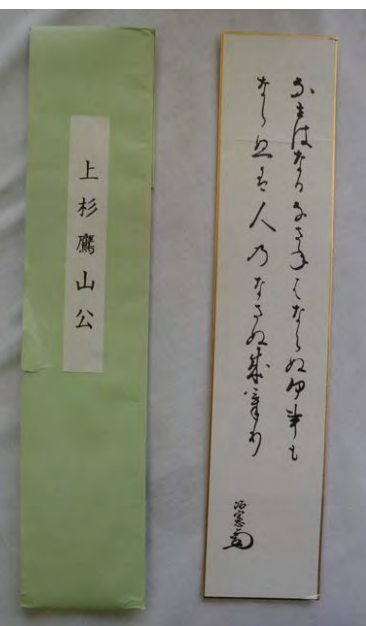 上杉鷹山公
なせはなるなさねはならぬ何事も
ならぬは人乃なさぬ成けり
治憲